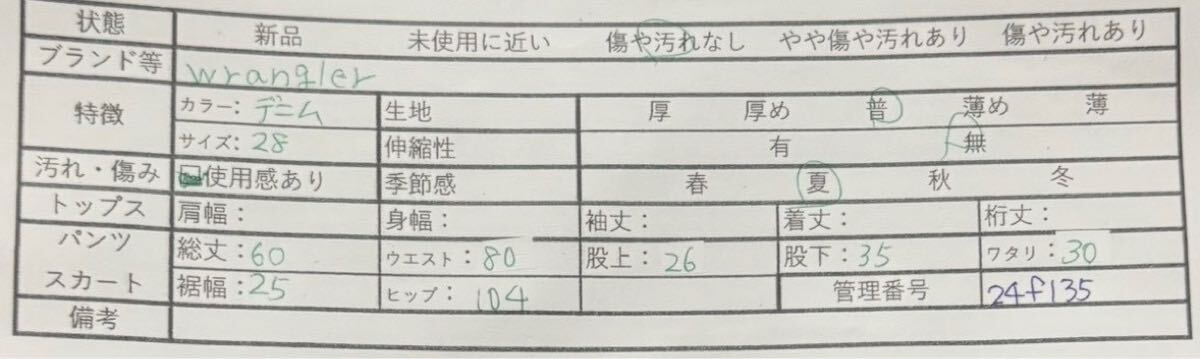 状態 新品 未使用に近い 傷や汚れなし やや傷や汚れあり 傷や汚れあり
ブランド等 wrangler
特徴 カラー：デニム 生地 厚 厚め 普 薄め 薄
サイズ：28 伸縮性 有 無
汚れ・傷み 使用感あり 季節感 春 夏 秋 冬
トップス 肩幅： 身幅： 袖丈： 着丈： 裄丈：
パンツ 総丈：60 ウエスト：80 股上：26 股下：35 ワタリ：30
スカート 裾幅：25 ヒップ：104 管理番号 24f135
備考